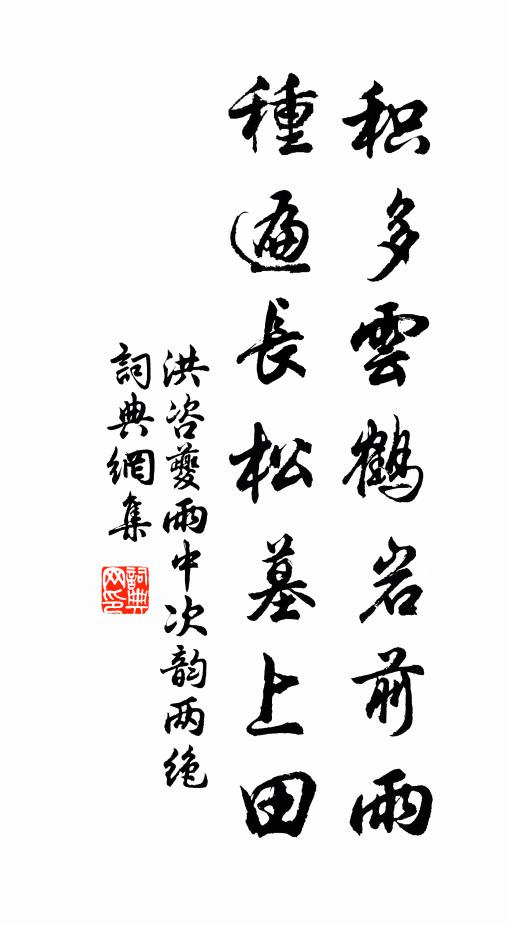 积多雲鶴岩前雨
種遍長松墓上田
洪咨夔雨中次韵两绝
詞典網集
詞典網印